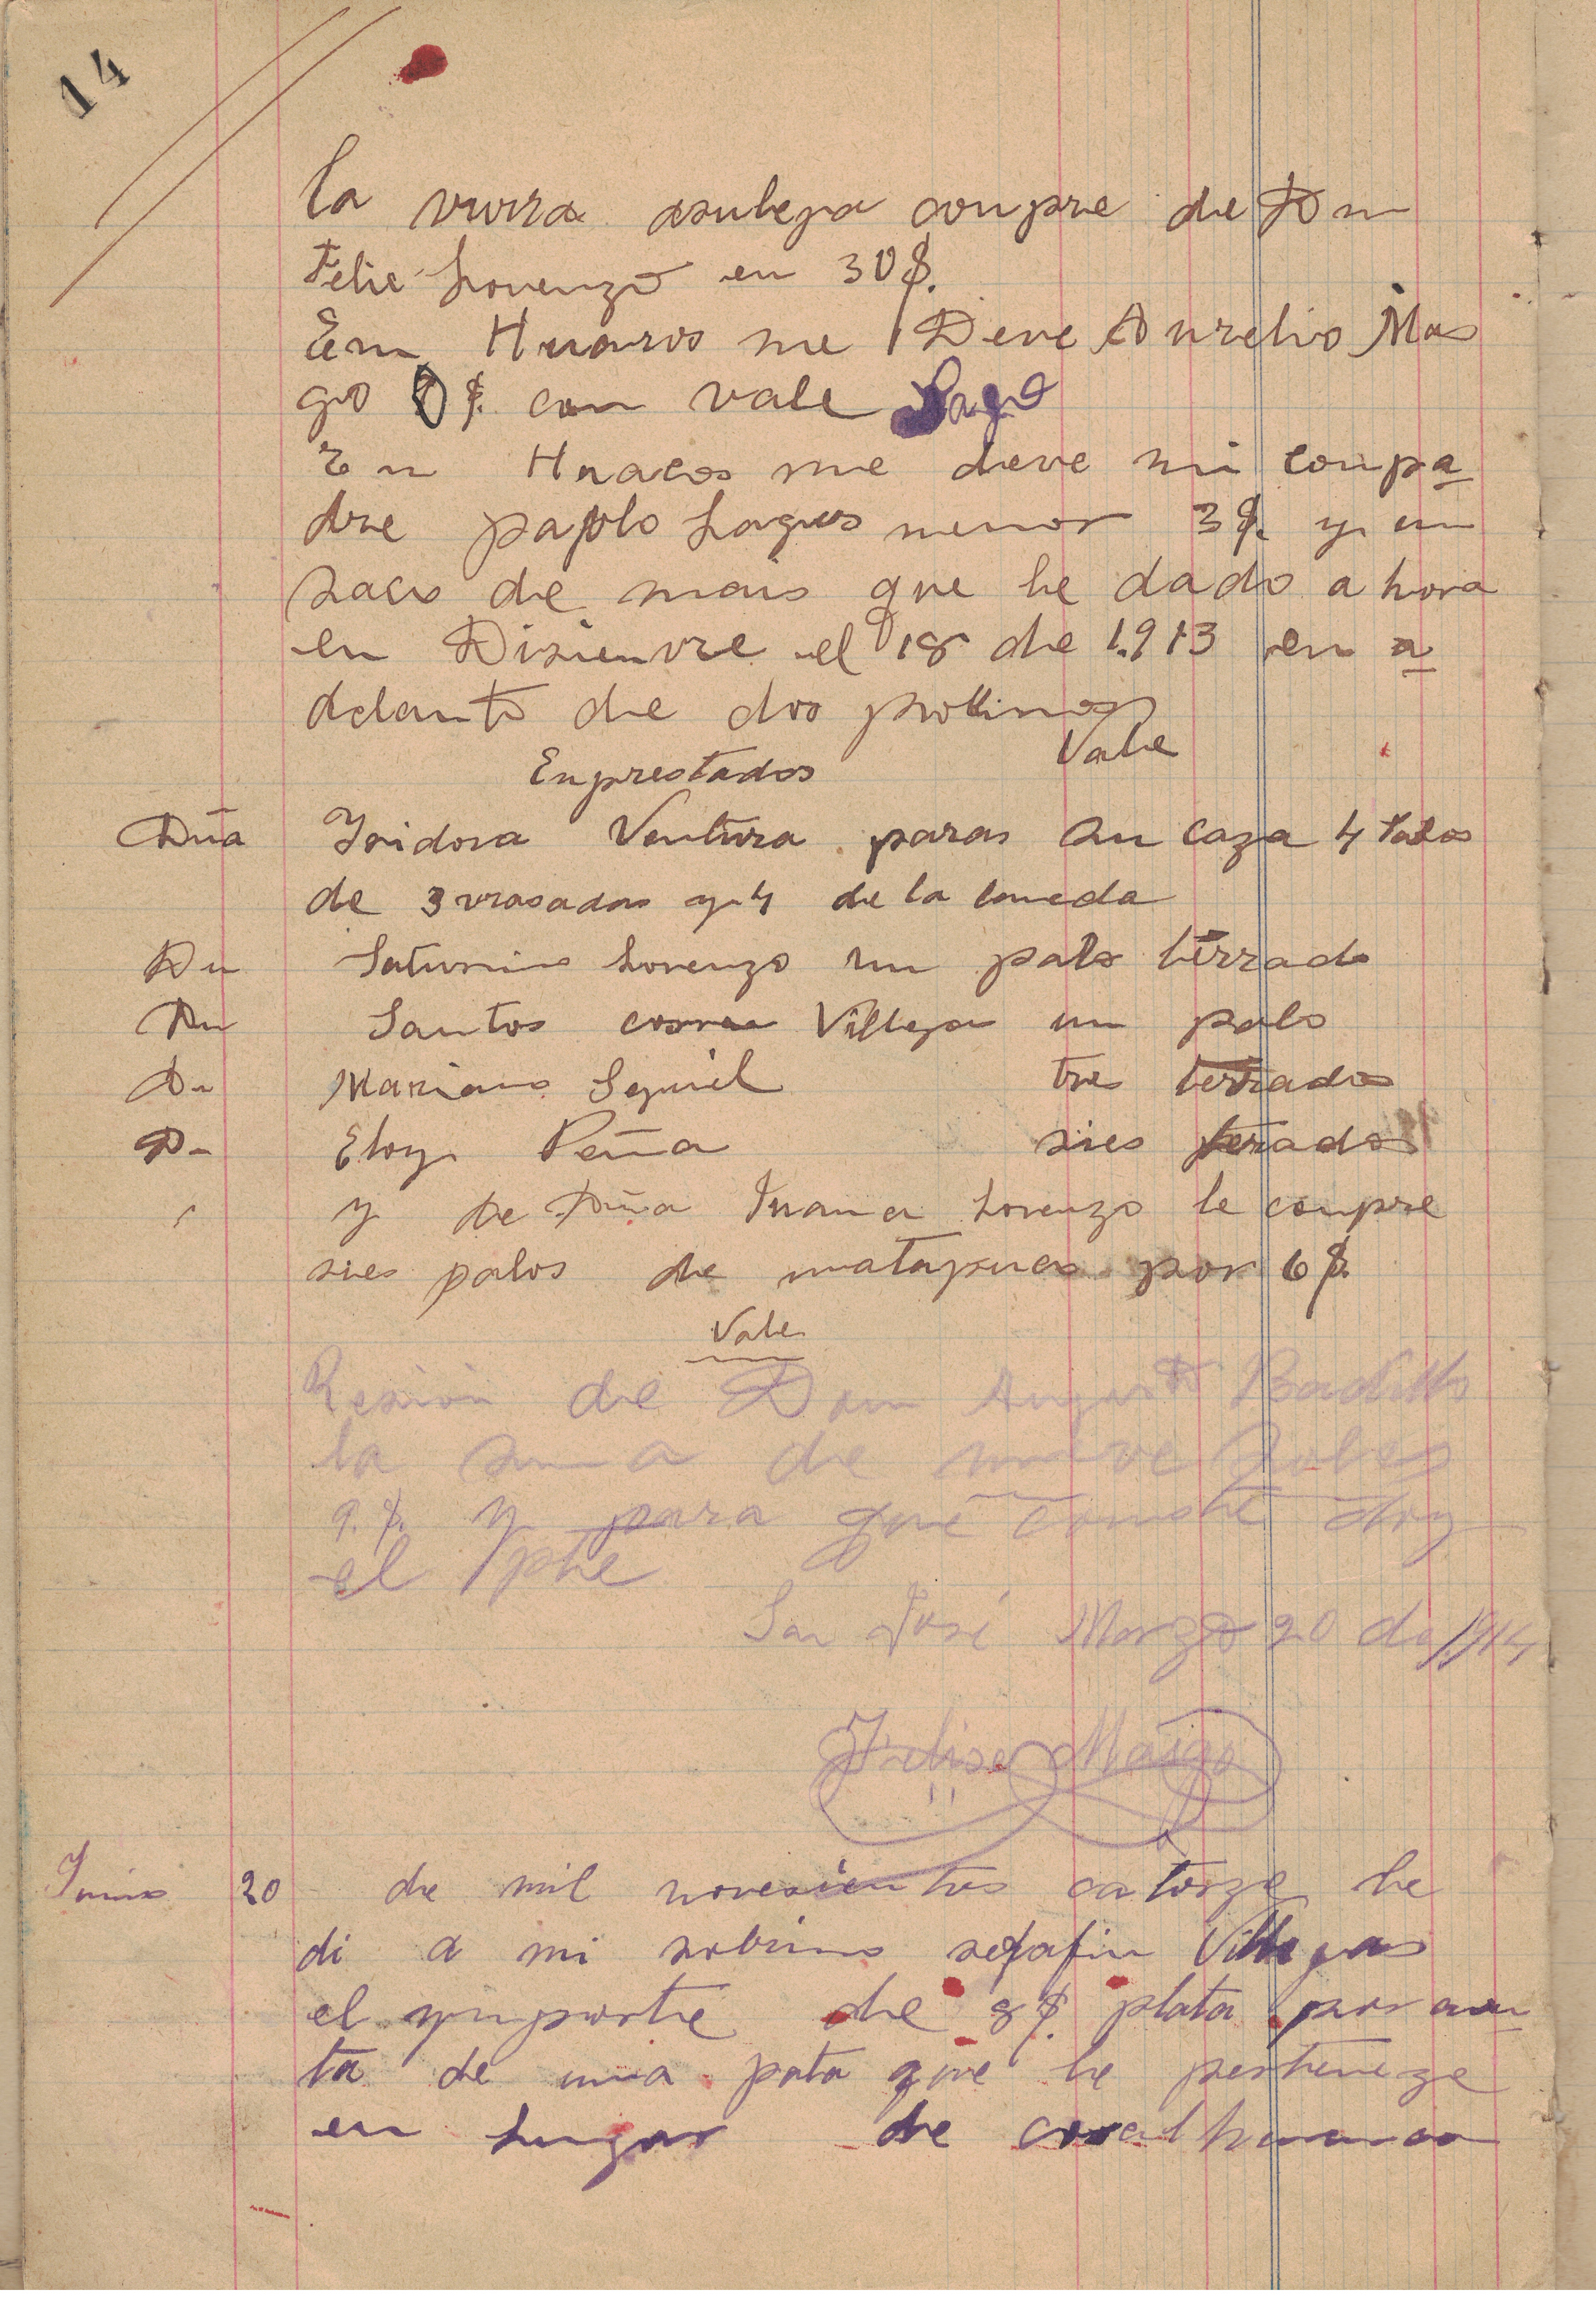 14
La vurra asulega conpre de Dn
Felis Lorenzo en 30 $.
En Huaros me Deve Aurelio Mas
go 8 $. con vale Pago
En Huacos me deve mi conpa
dre paplo Lagus menor 3 $. y un
saco de mais que he dado ahora
en Disienvre el 18 de 1.913 en a
delanto de dos pollinos
Vale
Enprestados
Dña Isidora Ventura paras su caza 4 palos
de 3 vrasadas y 4 de la
Dn Saturnino Lorenzo un palo terrado
Dn Santos correa Villegas un palo
Dn Mariano Seguil tres terrados
Dn Eloy Peña sies terados
y de Dñia Juana Lorenzo le conpre
sies palos de por 6 $.
Vale
Resivi de Don Augusto Badillo
la suma de nueve soles
9. $. y para que conste doy
el pte
San José Marzo 20 de 1914
Junio 20 de mil novesientos catorze he
di a mi sobrino sefafin Villegas
el ymporte de 8 $. plata por cuen
ta de una pata que le perteneze
en Lugar de coral